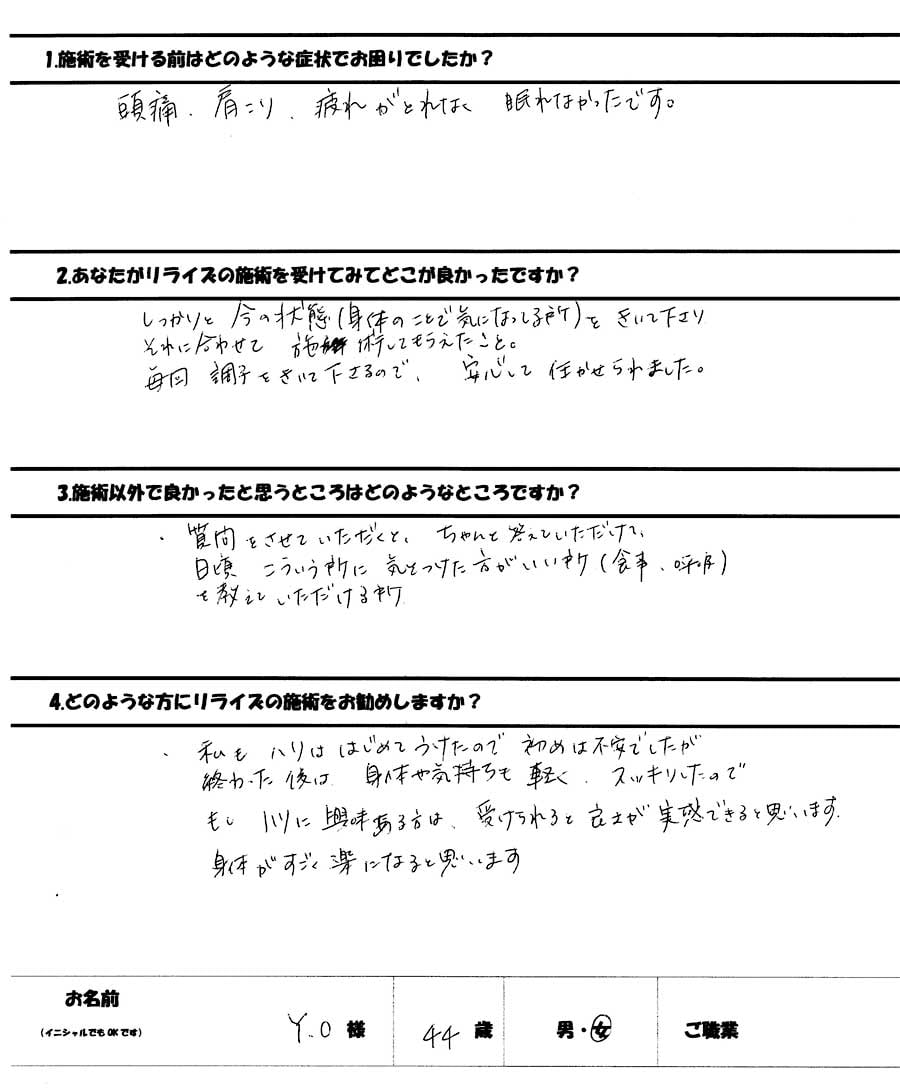 1.施術を受ける前はどのような症状でお困りでしたか？
頭痛、肩こり、疲れがとれなく 眠れなかったです。
2.あなたがリライズの施術を受けてみてどこが良かったですか？
しっかりと 今の状態(身体のことで気になってる所)を きいて下さり
それに合わせて 施術してもらえたこと。
毎回 調子をきいて下さるので、 安心して 任せられました。
3.施術以外で良かったと思うところはどのようなところですか？
・質問をさせていただくと、ちゃんと答えていただけて、
日頃 こういう所に 気をつけた方がいい所(食事、呼吸)
を教えていただける所
4.どのような方にリライズの施術をお勧めしますか？
・私も ハリは はじめてうけたので 初めは不安でしたが
終わった後は 身体や気持ちも 軽く、スッキリしたので
もし ハリに 興味ある方は、受けられると 良さが 実感できると思います。
身体がすごく楽になると思います
お名前
(イニシャルでもOKです)
Y.O 様 44 歳 男・女 ご職業